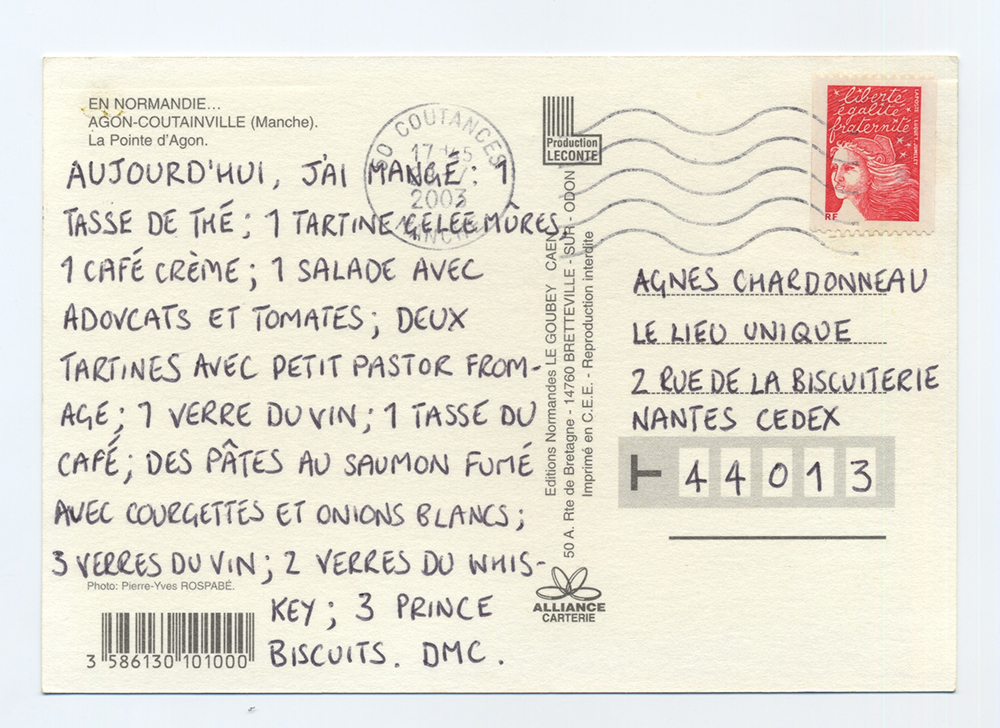 EN NORMANDIE...
AGON-COUTAINVILLE (Manche).
La Pointe d'Agon.
AUJOURD'HUI, J'AI MANGÉ: 1
TASSE DE THÉ; 1 TARTINE GELEE MÛRES,
1 CAFÉ CRÈME; 1 SALADE AVEC
ADOVCATS ET TOMATES; DEUX
TARTINES AVEC PETIT PASTOR FROM-
AGE; 1 VERRE DU VIN; 1 TASSE DU
CAFÉ; DES PÂTES AU SAUMON FUMÉ
AVEC COURGETTES ET ONIONS BLANCS;
3 VERRES DU VIN; 2 VERRES DU WHIS-
KEY; 3 PRINCE
BISCUITS. DMC.
Photo: Pierre-Yves ROSPABÉ.
3 586130 101000
50 COUTANCES
17
2003
MANCHE
Production
LECONTE
Editions Normandes LE GOUBEY CAEN
50 A. Rte de Bretagne - 14760 BRETTEVILLE - SUR - ODON
Imprimé en C.E.E. - Reproduction interdite
ALLIANCE
CARTERIE
liberté
égalité
fraternité
LA POSTE LUQUET-JUMELET
RF
AGNES CHARDONNEAU
LE LIEU UNIQUE
2 RUE DE LA BISCUITERIE
NANTES CEDEX
44013